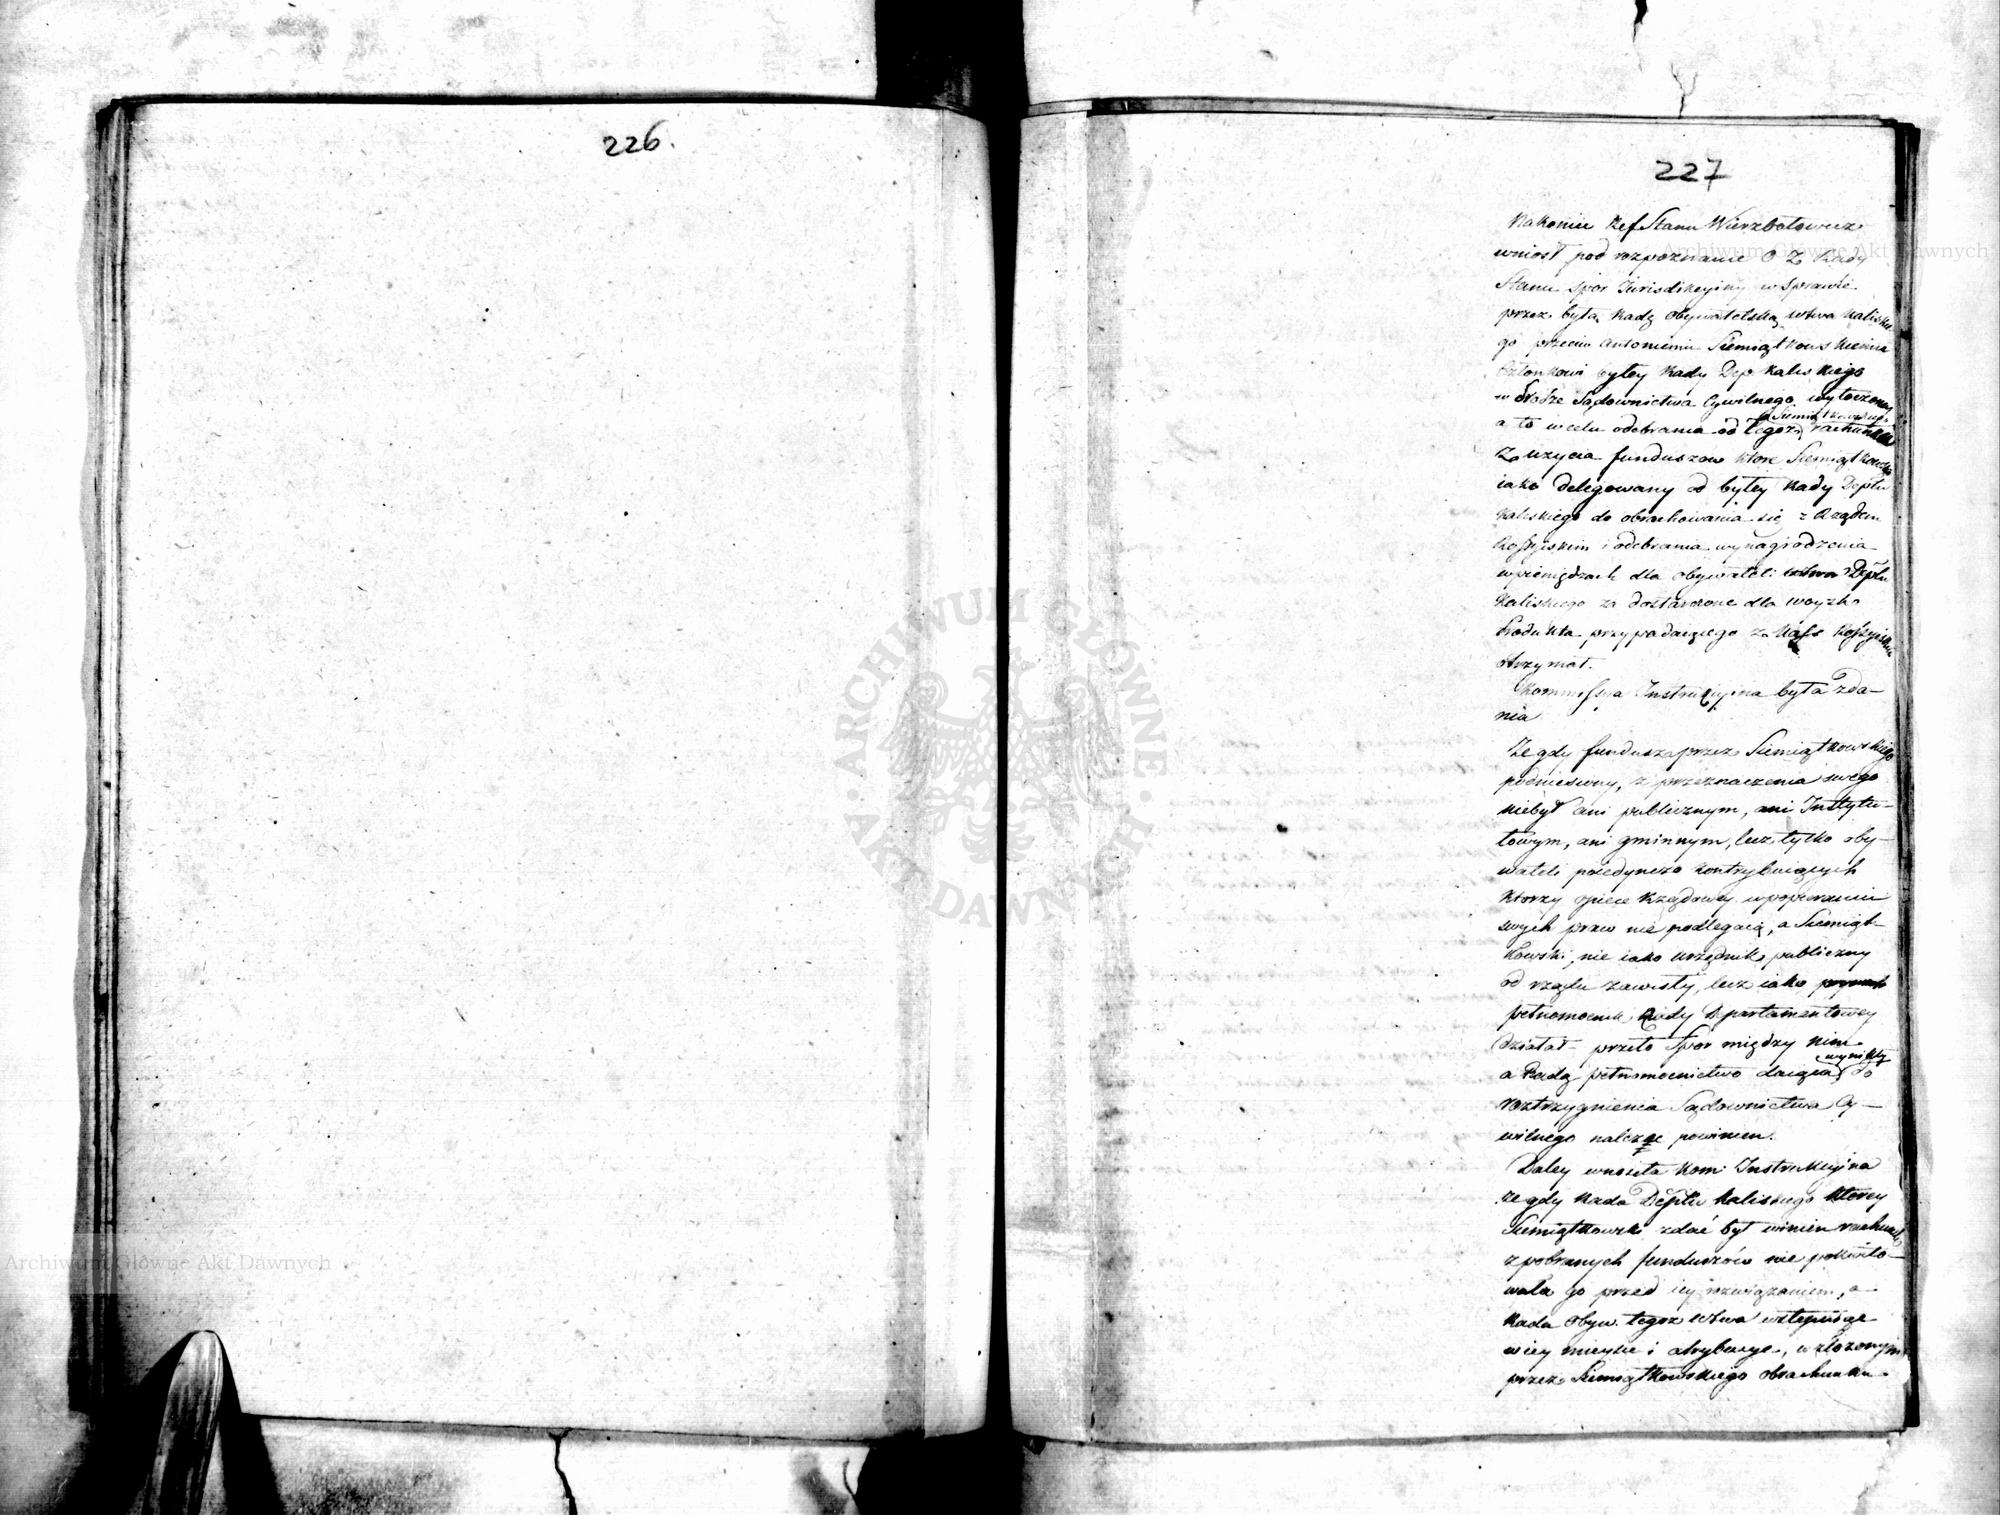 226.
227
Nakoniec Ref Stanu Wierzbołowicz
wniosł pod rozpoznanie O Z Rady
Stanu spor Jurisdikcyiny w sprawie
przez byłą Radę Obywatelską wdwa Kaliskie-
go przeciw Antoniemu Siemiątkowskiemu
Członkowi byłey Rady Dep Kaliskiego
w drodze Sądownictwa Cywilnego wytoczoney
a to w celu odebrania od tegoż Siemiątkowskiego rachunków
z użycia funduszow które Siemiątkowski
iako delegowany od byłey Rady Deptu
Kaliskiego do obrachowania się z Rządem
Rossyiskim i odebrania wynagrodzenia
w pieniędzach dla obywateli Deptu
Kaliskiego za dostarczone dla woyska
Produkta przypadaiącego z Kass Rossyiskich
otrzymał.
Kommissya Instrukcyina była zda-
nia
Że gdy fundusz przez Siemiątkowskiego
podniesiony, z przeznaczenia swego
niebył ani publicznym, ani Instytu-
towym, ani gminnym, lecz tylko oby-
wateli poiedynczo kontrybuiących
którzy opiece Rządowey w popieraniu
swych praw nie podlegaią, a Siemiąt-
kowski, nie iako urzędnik publiczny
od rządu zawisły, lecz iako
pełnomocnik Rady Departamentowey
działał przeto Spor między nim
a Radą pełnomocnictwo daiącą wynikły do
roztrzygnienia Sądownictwa Cy-
wilnego należeć powinien.
Daley wnosiła Kom: Instrukcyina
że gdy Rada Deptu Kaliskiego ktorey
Siemiątkowski zdać był winien rachunek
z pobranych funduszów nie pokwito-
wała go przed iey rozwiązaniem, a
Rada Obyw. tegoż wdwa wstępuiąc
w iey mieysce i atrybucye, w złożonym
przez Siemiątkowskiego obrachunku
ARCHIWUM GŁÓWNE
AKT DAWNYCH
Archiwum Główne Akt Dawnych
Archiwum Główne Akt Dawnych